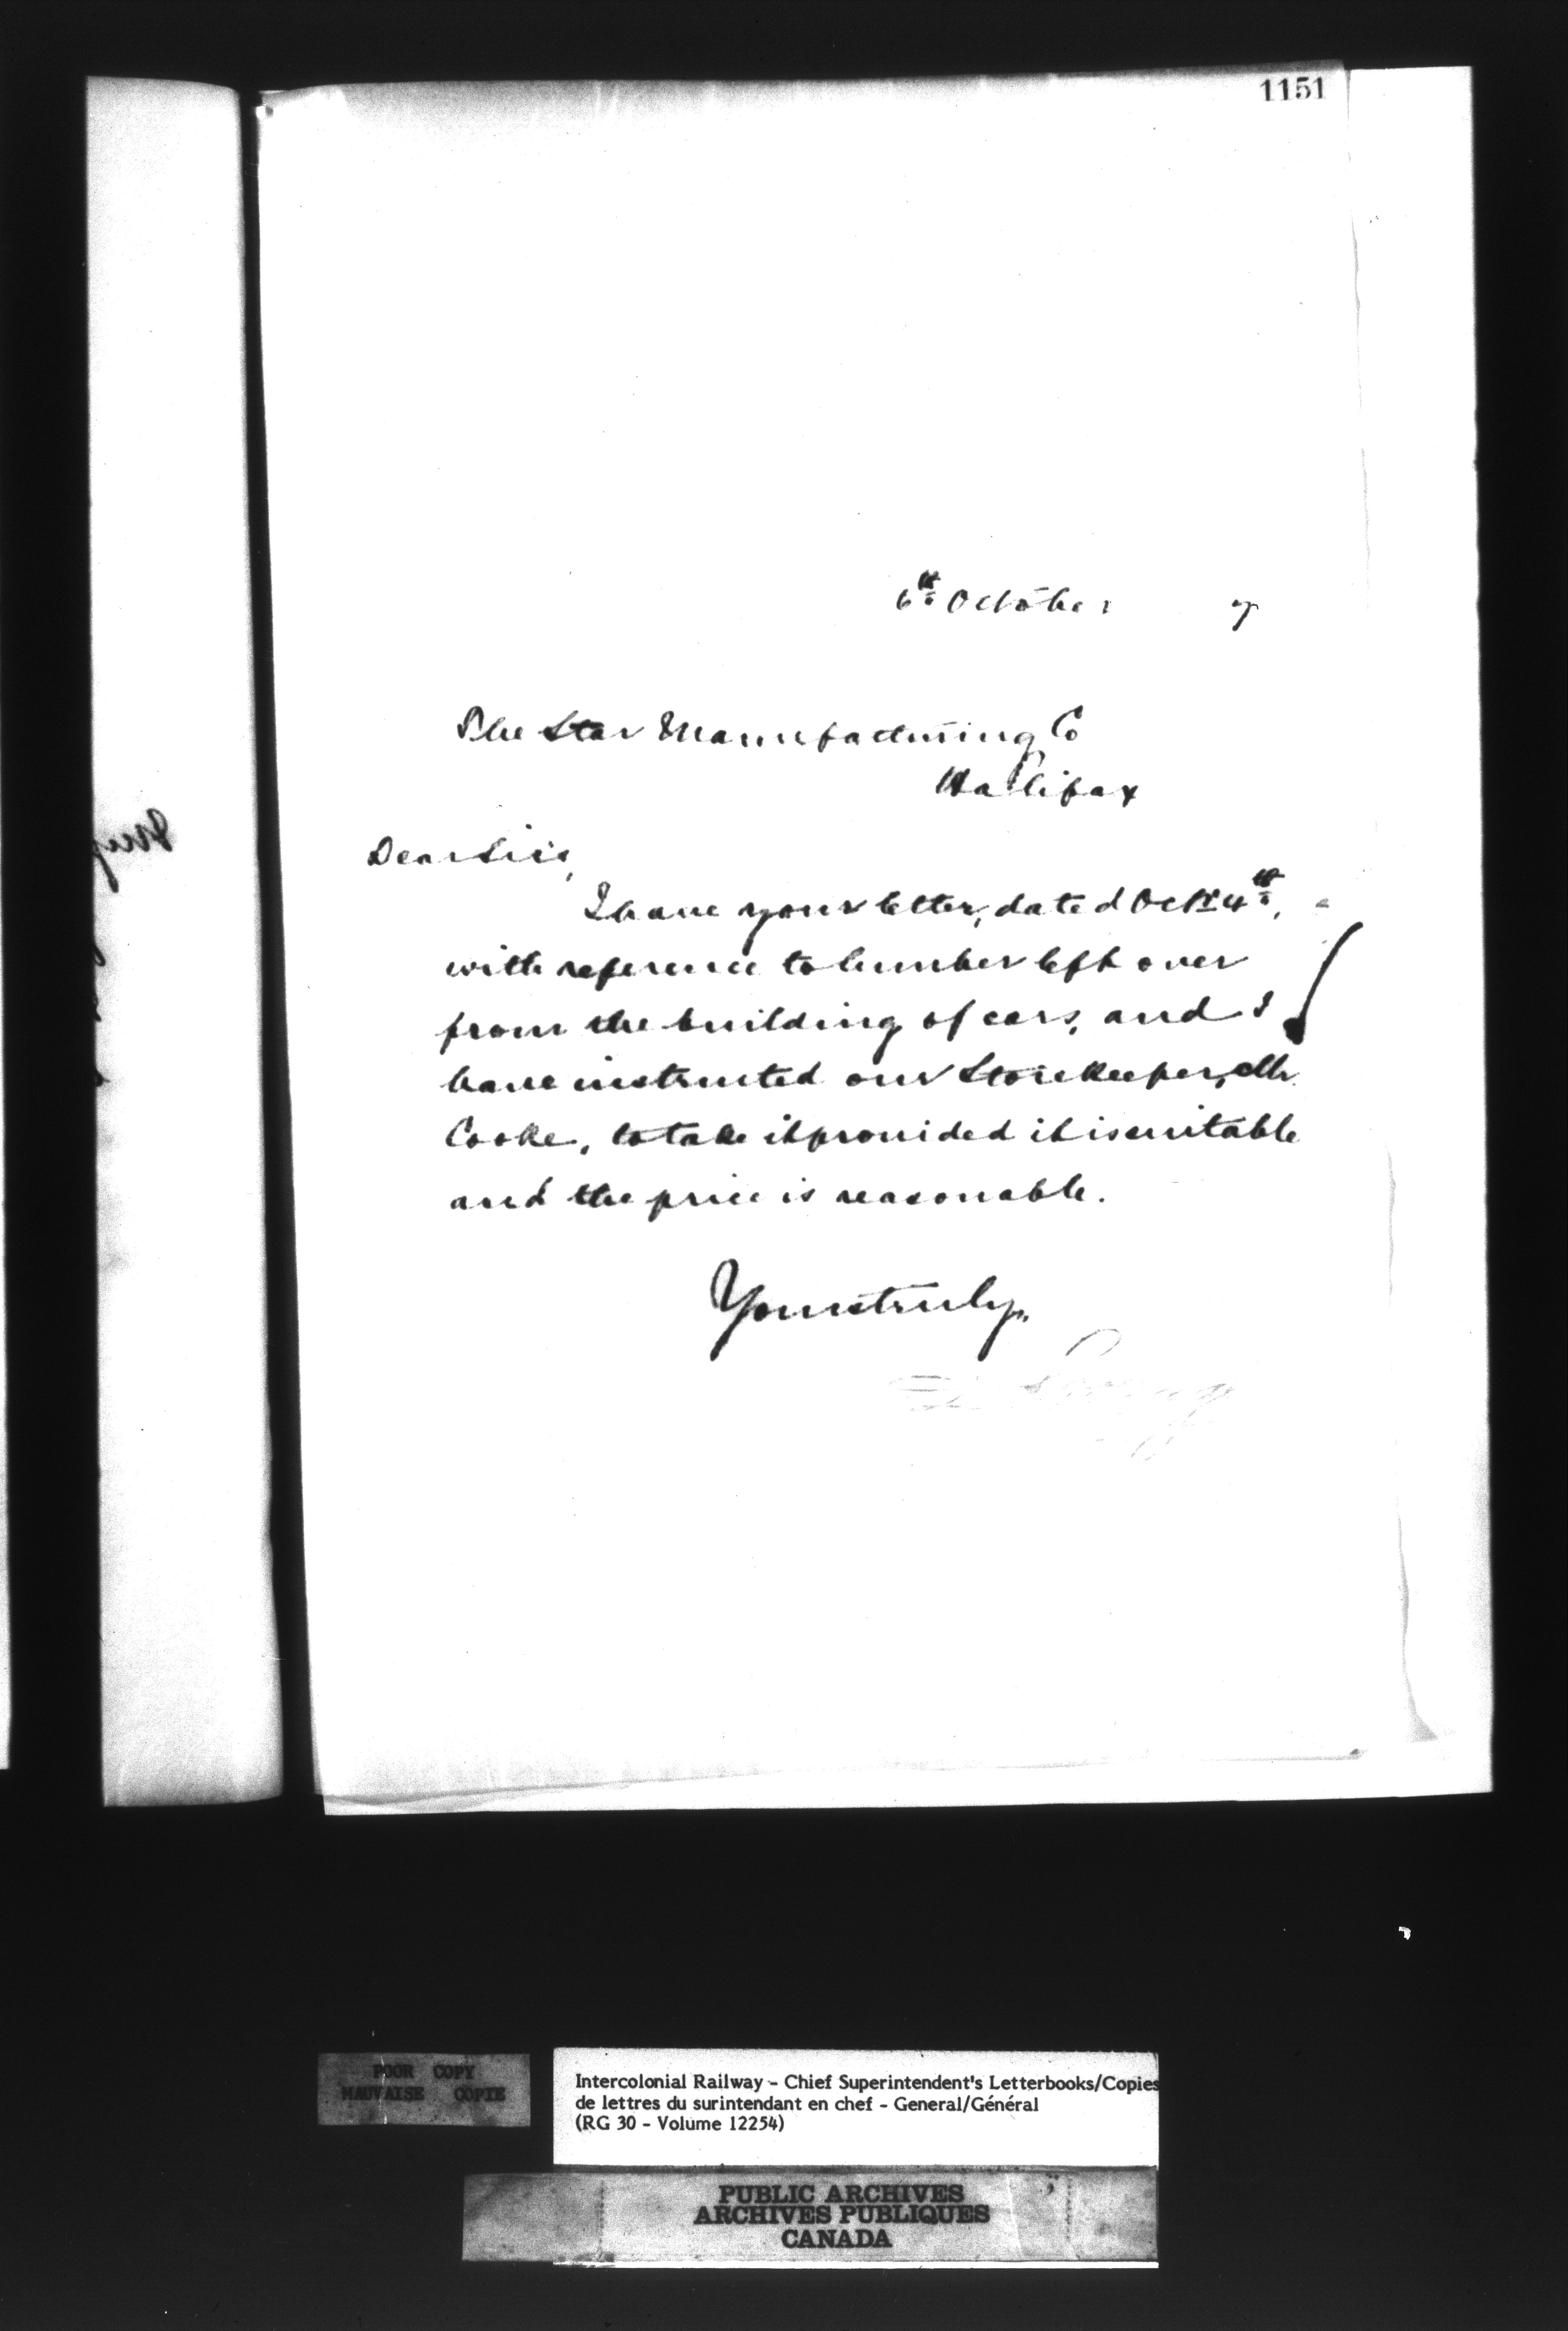 1151
6th October 7
The Star Manufacturing Co
Halifax
Dear Sirs,
I have your letter, dated Oct 4th,
with reference to lumber left over
from the building of cars, and I
have instructed our Storekeeper, Mr.
Cooke, to take it provided it is suitable
and the price is reasonable.
Yours truly,
POOR COPY
MAUVAISE COPIE
Intercolonial Railway - Chief Superintendent's Letterbooks/Copies
de lettres du surintendant en chef - General/Général
(RG 30 - Volume 12254)
PUBLIC ARCHIVES
ARCHIVES PUBLIQUES
CANADA